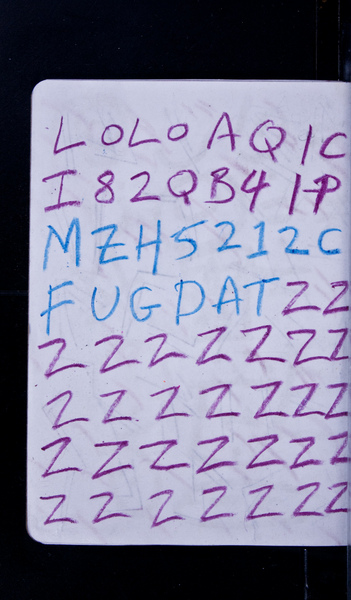 LOLOAQIC
I82QB41P
MZH5212C
FUGDATZZ
ZZZZZZZ
ZZZZZZZ
ZZZZZZZ
ZZZZZZZ